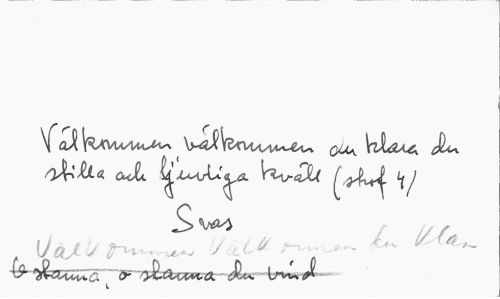 Välkommen välkommen du klara du
stilla och ljuvliga kväll (strof 4)
Svas
Välkommen Välkommen du Klar
O stanna, o stanna du vind